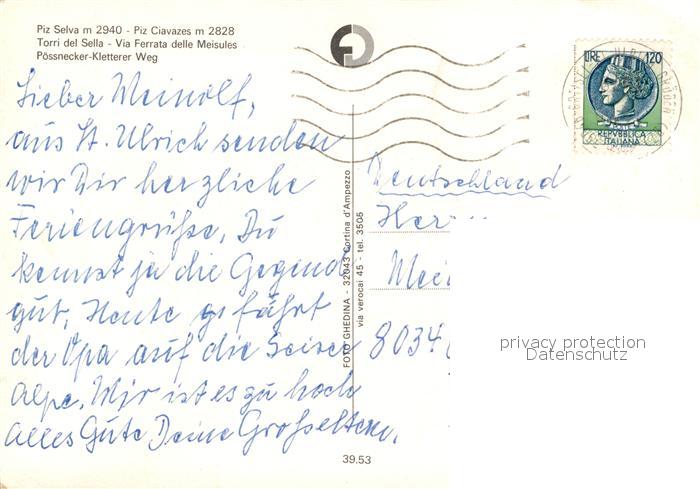 Piz Selva m 2940 - Piz Ciavazes m 2828
Torri del Sella - Via Ferrata delle Meisules
Pössnecker-Kletterer Weg
Lieber Meinolf,
aus St. Ulrich senden
wir Dir herzliche
Feriengrüße. Du
kennst ja die Gegend
gut. Heute fährt
der Opa auf die Seiser
Alpe. Mir ist es zu hoch
Alles Gute Deine Großeltern.
FOTO GHEDINA - 32043 Cortina d'Ampezzo
via verocai 45 - tel. 3505
39.53
LIRE 120
REPVBBLICA
ITALIANA
Deutschland
Herr
Mei
8034
privacy protection
Datenschutz